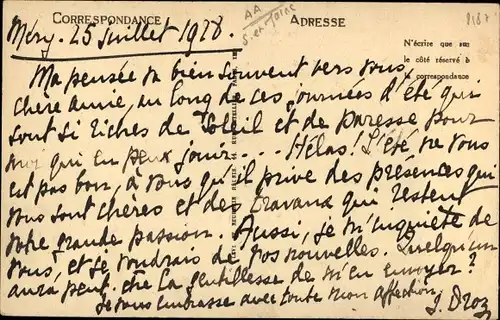 CORRESPONDANCE
ADRESSE
Méry. 25 Juillet 1928.
N'écrire que sur
le côté réservé à
la correspondance
Ma pensée va bien souvent vers vous,
chère amie, au long de ces journées d'été qui
sont si riches de Soleil et de paresse pour
moi qui en peux jouir.... Hélas! L'été ne vous
est pas bon, à vous qu'il prive des présences qui
vous sont chères et des travaux qui restent
votre grande passion. Aussi, je m'inquiète de
vous, et je voudrais de vos nouvelles. Quelqu'un
aura peut-être la gentillesse de m'en envoyer?
Je vous embrasse avec toute mon affection.
J. Droz